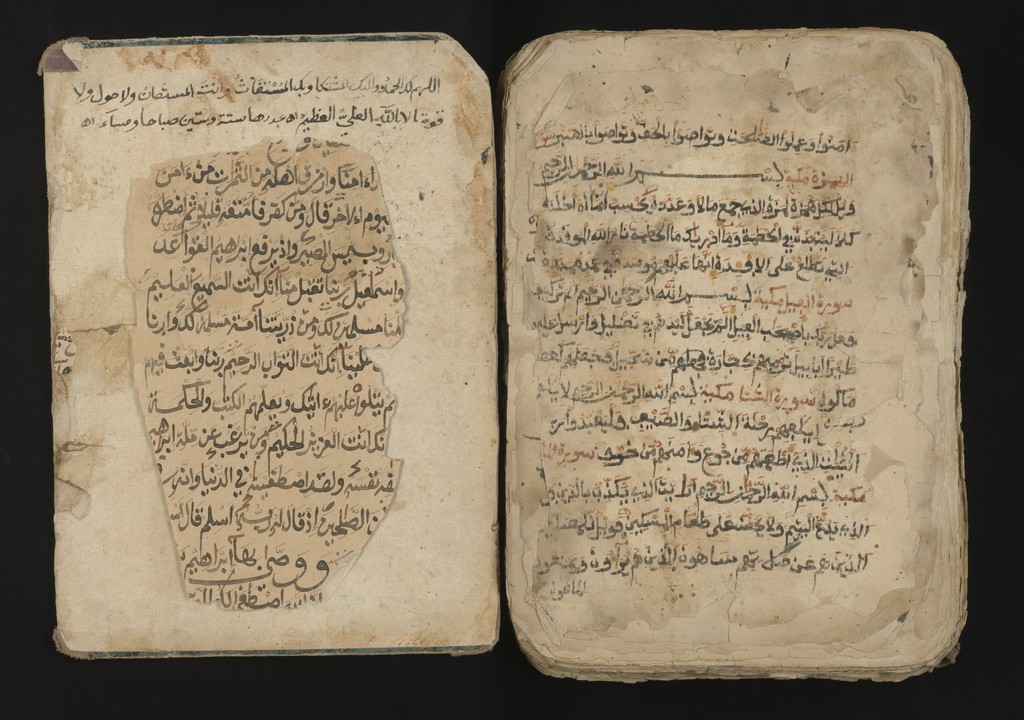 امنوا وعملوا الصلحت وتواصوا بالحق وتواصوا بالصبر
الهمزة مكية بسم الله الرحمن الرحيم
ويل لكل همزة لمزة الذي جمع مالا وعدده ايحسب ان ماله اخلده
كلا لينبذن في الحطمة وما ادريك ما الحطمة نار الله الموقدة
التي تطلع على الافدة انها عليهم موصدة في عمد ممددة
سورة الفيل مكية بسم الله الرحمن الرحيم الم تر كيف
فعل ربك باصحب الفيل الم يجعل كيدهم في تضليل وارسل عليهم
طيرا ابابيل ترميهم بحجارة من سجيل فجعلهم كعصف
ماكول سورة الشتا مكية بسم الله الرحمن الرحيم لايلف
ايلفهم رحلة الشتاء والصيف فليعبدوا رب
البيت الذي اطعمهم من جوع وامنهم من خوف سورة
مكية بسم الله الرحمن الرحيم ارايت الذي يكذب بالدين فذلك
الذي يدع اليتيم ولا يحض على طعام المسكين فويل للمصلين
الذين هم عن صلاتهم ساهون الذين هم يراون ويمنعون
الماعون
اللهم لك الحمد واليك المشتكا وبك المستغاث وانت المستعان ولا حول ولا
قوة الا بالله العلي العظيم اه عددها ستة وستين صباحا ومساء اه
ءامنا وارزق اهله من الثمرت من ءامن
ليوم الاخر قال ومن كفر فامتعه قليلا ثم اضطره
وبيس المصير واذ يرفع ابراهيم القواعد
واسمعيل ربنا تقبل منا انك انت السميع العليم
مسلمين لك ومن ذريتنا امة مسلمة لك وارنا
علينا انك انت التواب الرحيم ربنا وابعث فيهم
يتلوا عليهم ءايتك ويعلمهم الكتب والحكمة
انك انت العزيز الحكيم ومن يرغب عن ملة ابراهيم
نفسه ولقد اصطفينه في الدنيا وانه
الصلحين اذ قال له ربه اسلم قال
ووصى بها ابراهيم
الله اصطفى لكم